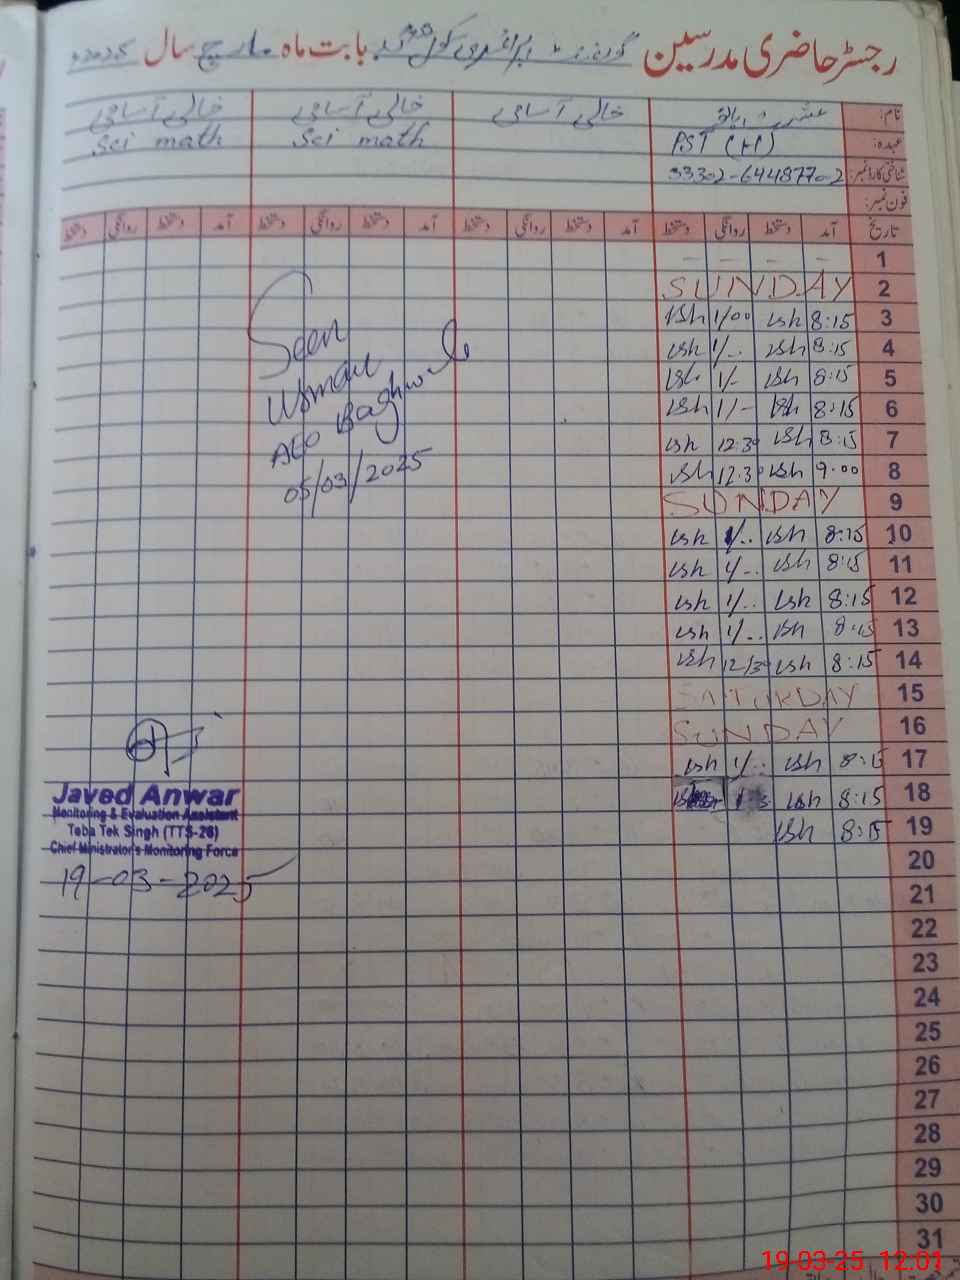 رجسٹر حاضری مدرسین گورنمنٹ پرائمری سکول بابت ماہ مارچ سال 2025ء
نام: عشرت خالی آسامی خالی آسامی خالی آسامی
عہدہ: PST (H) Sci math Sci math
شناختی کارڈ نمبر: 33302-6448770-2
فون نمبر:
تاریخ آمد دستخط روانگی دستخط آمد دستخط روانگی دستخط آمد دستخط روانگی دستخط آمد دستخط روانگی دستخط
1 - - - -
2 SUNDAY
3 8:15 ish 1/00 ish
4 8:15 ish 1/.. ish
5 8:15 ish 1/- ish
6 8:15 ish 1/- ish
7 8:15 ish 12:30 ish
8 9:00 ish 12:30 ish
9 SUNDAY
10 8:15 ish 1/.. ish
11 8:15 ish 1/.. ish
12 8:15 ish 1/.. ish
13 8:15 ish 1/.. ish
14 8:15 ish 12/30 ish
15 SATURDAY
16 SUNDAY
17 8:15 ish 1/.. ish
18 8:15 ish
19 8:15 ish
20
21
22
23
24
25
26
27
28
29
30
31
Seen
Usman
AEO Baghwal
05/03/2025
Javed Anwar
Monitoring & Evaluation Assistant
Toba Tek Singh (TTS-26)
Chief Ministrator's Monitoring Force
19-03-2025
19-03-25 12:01